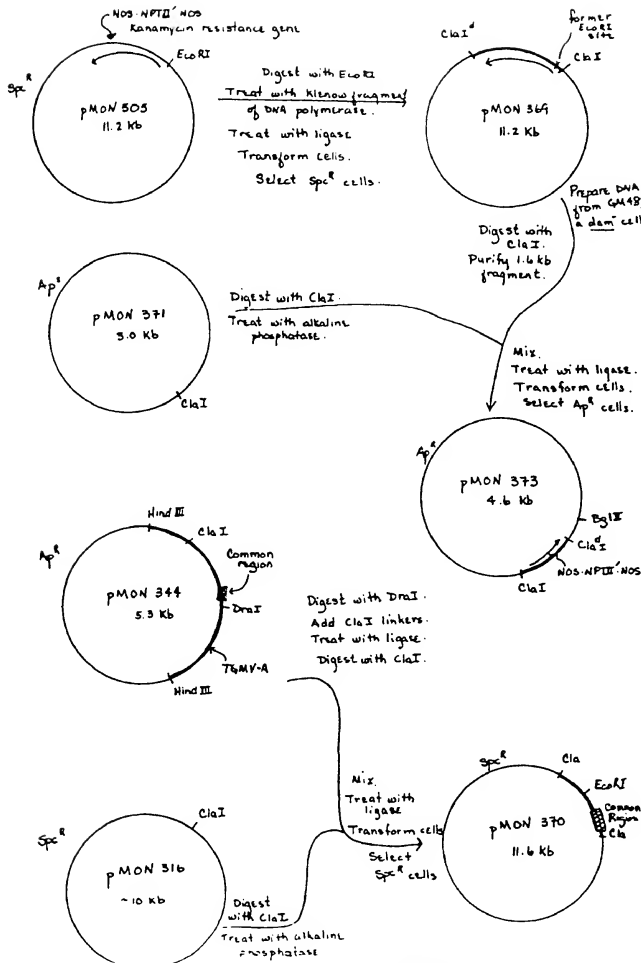 NOS-NPTII'-NOS
Kanamycin resistance gene
EcoRI
Spc^R
pMON 505
11.2 Kb
Digest with EcoRI
Treat with Klenow fragment
of DNA polymerase.
Treat with ligase
Transform cells.
Select Spc^R cells.
former
EcoRI
site
ClaI^d
ClaI
pMON 369
11.2 Kb
Prepare DNA
from GM48,
a dam^- cell
Digest with
ClaI.
Purify 1.6 kb
fragment.
Ap^R
pMON 371
3.0 Kb
ClaI
Digest with ClaI.
Treat with alkaline
phosphatase.
Mix.
Treat with ligase.
Transform cells.
Select Ap^R cells.
Ap^R
pMON 373
4.6 Kb
BglII
Cla^dI
NOS-NPTII'-NOS
ClaI
Hind III
ClaI
Common
region
Ap^R
pMON 344
5.3 Kb
DraI
TGMV-A
Hind III
Digest with DraI.
Add ClaI linkers.
Treat with ligase.
Digest with ClaI.
Spc^R
ClaI
pMON 316
~10 Kb
Digest
with ClaI
Treat with alkaline
phosphatase
Mix.
Treat with
ligase
Transform cells
Select
Spc^R cells
Spc^R
Cla
EcoRI
Common
Region
Cla
pMON 370
11.6 Kb